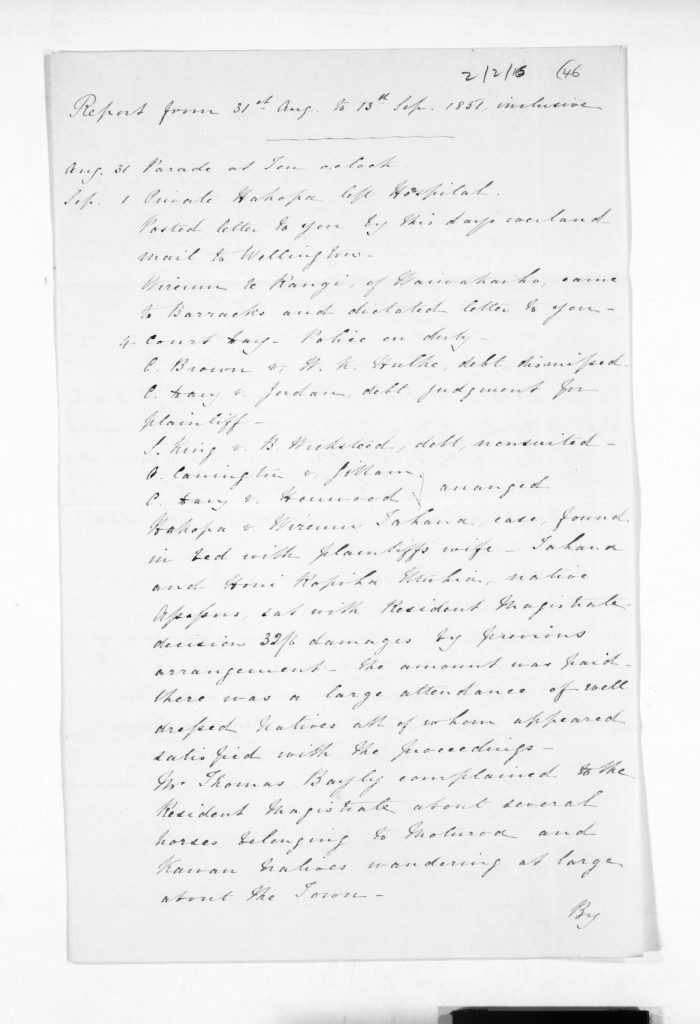 2/2/16 (46
Report from 31st Aug. to 13th Sep. 1851, inclusive
Aug. 31 Parade at Ten oclock
Sep. 1 Private Hakopa left Hospital.
Posted letter to you by this day's overland
mail to Wellington -
Wiremu te Rangi, of Waiwakaiho, came
to Barracks and dictated letter to you -
4. Court day - Police on duty -
C. Brown v. H. K. Hulke, debt, dismissed.
C. Davy v. Jordan, debt, judgment for
plaintiff -
S. King v. B. Wicksteed, debt, nonsuited -
O. Carrington v. Gillam
C. Davy v. Henwood } arranged
Hakopa v. Wiremu Tahana, case, found
in bed with plaintiff's wife - Tahana
and Honi Ropiha, native
Assessors, sat with Resident Magistrate.
decision 32/6 damages by previous
arrangement - the amount was paid -
there was a large attendance of well
dressed natives all of whom appeared
satisfied with the proceedings -
Mr Thomas Bayly complained to the
Resident Magistrate about several
horses belonging to Moturoa and
Kawau natives wandering at large
about the Town -
By